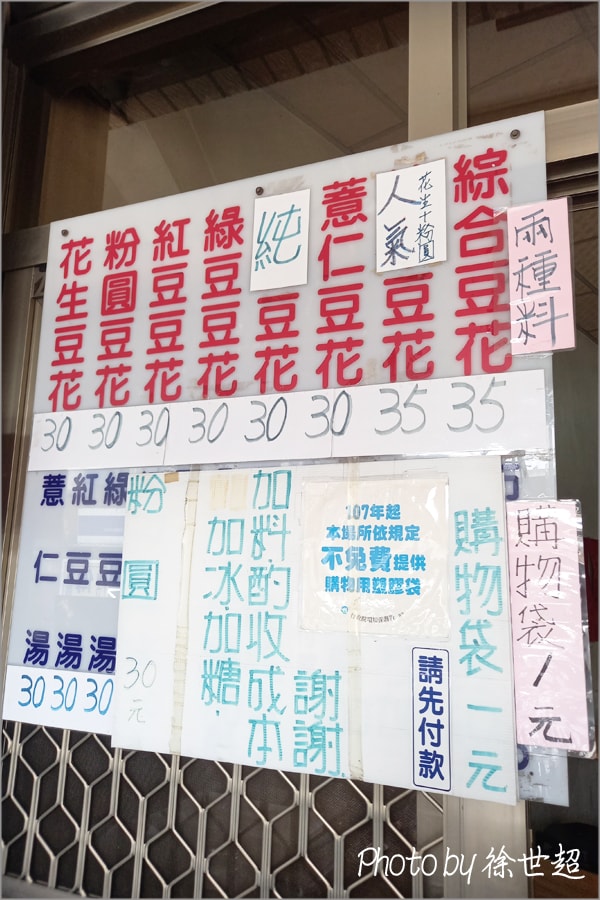 綜合豆花
35
兩種料
人氣
花生+粉圓
豆花
35
薏仁豆花
30
純
豆花
30
綠豆豆花
30
紅豆豆花
30
粉圓豆花
30
花生豆花
30
購物袋1元
購物袋一元
請先付款
107年起
本場所依規定
不免費提供
購物用塑膠袋
加料酌收成本
謝謝
加冰.加糖.
粉圓
30元
綠豆湯
30
紅豆湯
30
薏仁湯
30
Photo by 徐世超